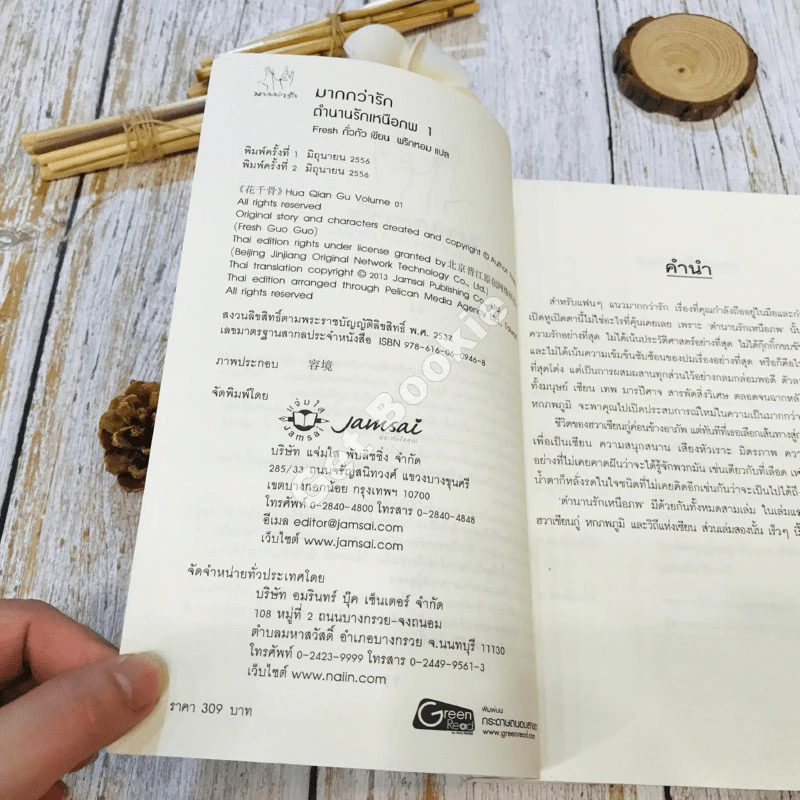 มากกว่ารัก
มากกว่ารัก
ตำนานรักเหนือภพ 1
Fresh กั่วกัว เขียน พริกหอม แปล
พิมพ์ครั้งที่ 1 มิถุนายน 2556
พิมพ์ครั้งที่ 2 มิถุนายน 2556
《花千骨》Hua Qian Gu Volume 01
All rights reserved
Original story and characters created and copyright © Author:
(Fresh Guo Guo)
Thai edition rights under license granted by 北京晋江原创网络
(Beijing Jinjiang Original Network Technology Co., Ltd.)
Thai translation copyright © 2013 Jamsai Publishing Co., Ltd.
Thai edition arranged through Pelican Media Agency Taiwan
All rights reserved
สงวนลิขสิทธิ์ตามพระราชบัญญัติลิขสิทธิ์ พ.ศ. 2537
เลขมาตรฐานสากลประจำหนังสือ ISBN 978-616-06-0946-8
ภาพประกอบ 容境
จัดพิมพ์โดย
แจ่มใส
Jamsai
Jamsai
ประทับใจคุณ
บริษัท แจ่มใส พับลิชชิ่ง จำกัด
285/33 ถนนจรัญสนิทวงศ์ แขวงบางขุนศรี
เขตบางกอกน้อย กรุงเทพฯ 10700
โทรศัพท์ 0-2840-4800 โทรสาร 0-2840-4848
อีเมล editor@jamsai.com
เว็บไซต์ www.jamsai.com
จัดจำหน่ายทั่วประเทศโดย
บริษัท อมรินทร์ บุ๊ค เซ็นเตอร์ จำกัด
108 หมู่ที่ 2 ถนนบางกรวย-จงถนอม
ตำบลมหาสวัสดิ์ อำเภอบางกรวย จ.นนทบุรี 11130
โทรศัพท์ 0-2423-9999 โทรสาร 0-2449-9561-3
เว็บไซต์ www.naiin.com
ราคา 309 บาท
Green
Read
พิมพ์บน
กระดาษถนอมสายตา
www.greenread.com
Get Bookie
คำนำ
สำหรับแฟนๆ แนวมากกว่ารัก เรื่องที่คุณกำลังถืออยู่ในมือและ
เปิดหูเปิดตานี้ไม่ใช่อะไรที่คุ้นเคยเลย เพราะ 'ตำนานรักเหนือภพ'
ความรักอย่างที่สุด ไม่ได้เน้นประวัติศาสตร์อย่างที่สุด ไม่ได้กุ๊กกิ๊กขบขัน
และไม่ได้เน้นความเข้มข้นซับซ้อนของปมเรื่องอย่างที่สุด หรือก็คือไร
ที่สุดโต่ง แต่เป็นการผสมผสานทุกส่วนไว้อย่างกลมกล่อมพอดี ตัวละ
ทั้งมนุษย์ เซียน เทพ มารปีศาจ สารพัดสิ่งวิเศษ ตลอดจนฉากหลัง
หกภพภูมิ จะพาคุณไปเปิดประสบการณ์ใหม่ในความเป็นมากกว่า
ชีวิตของฮวาเชียนกู่ค่อนข้างอาภัพ แต่ทันทีที่เธอเลือกเส้นทางสู่
เพื่อเป็นเซียน ความสนุกสนาน เสียงหัวเราะ มิตรภาพ ความ
อย่างที่ไม่เคยคาดฝันว่าจะได้รู้จักพวกมัน เช่นเดียวกับที่เลือด
น้ำตาก็หลั่งรดในใจชนิดที่ไม่เคยคิดอีกเช่นกันว่าจะเป็นไปได้ถึง
'ตำนานรักเหนือภพ' มีด้วยกันทั้งหมดสามเล่ม ในเล่มแรก
ฮวาเชียนกู่ หกภพภูมิ และวิถีแห่งเซียน ส่วนเล่มสองนั้น เร็วๆ นี้